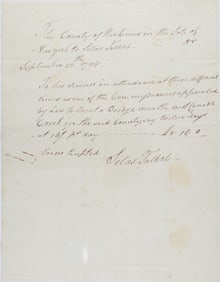 The County of Herkemer in the State of
New york to Silas Talbot Dr
September 20th 1795
To his services in attendance at three different
times as one of the Commissioners appointed
by Law to Erect a Bridge over the west Canada
Creek in the said County say twelve days
at 16/ pr day £ 9.. 16.. 0
Errors Excepted
Silas Talbot